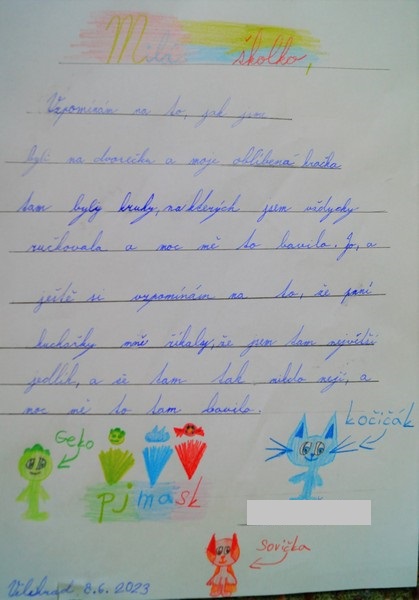 Milá školko,
Vzpomínám na to, jak jsm
byli na dvorečku a moje oblíbená hračka
tam byly kruhy, na kterých jsem vždycky
ručkovala a moc mě to bavilo. Jo, a
ještě si vzpomínám na to, že paní
kuchařky mně říkaly, že jsem tam největší
jedlík, a že tam tak nikdo nejí, a
moc mě to tam bavilo.
Geko
kočičák
pj mask
Sovička
Velehrad 8.6.2023